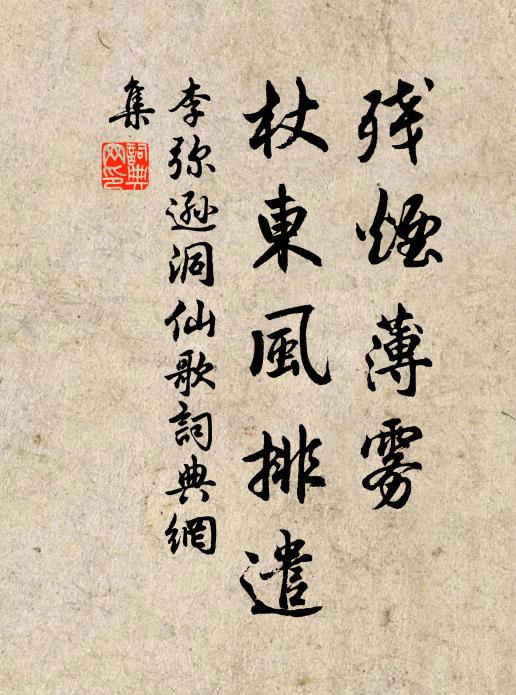 残煙薄雾
杖東風排遣
李弥遜洞仙歌詞典網
集
詞典
网印